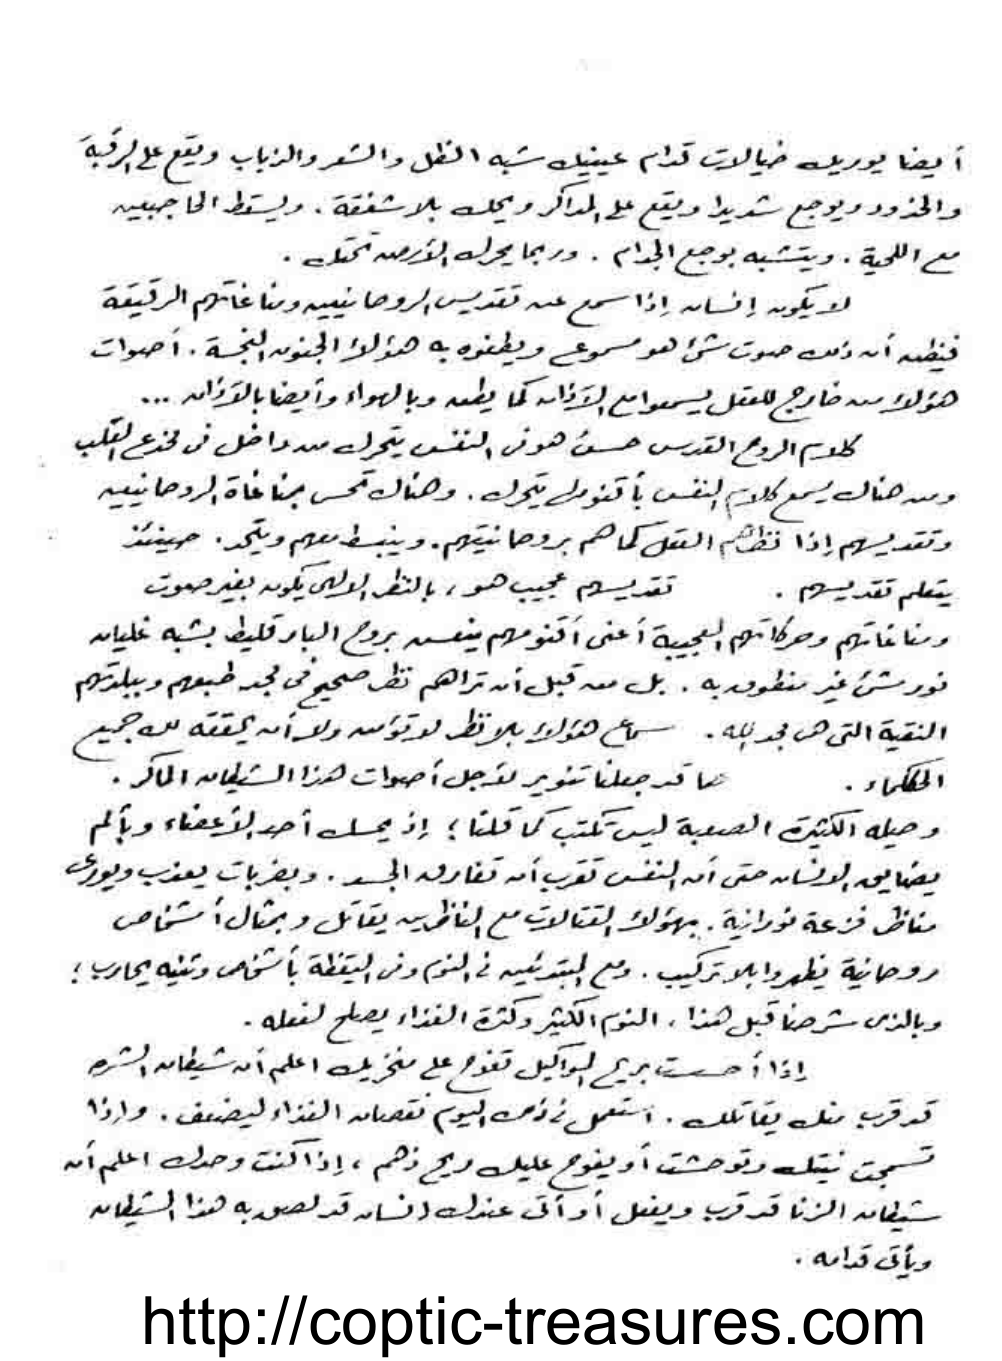 أيضا يوريك خيالات قدام عينيك شبه النمل والشعر والذباب ويقع على الرقبة
والخدود ويوجع شديدا ويقع على المذاكر ويحك بلا شفقة . ويسقط الحاجبين
مع اللحية . ويتشبه بوجع الجذام . وربما يحرك الأرض تحتك .
لا يكون إنسان إذا سمع عن تقديس الروحانيين ومناغاتهم الرقيقة
فيظن أن ذلك صوت شئ هو مسموع ويطغوه به هؤلاء الجنون النجسة . أصوات
هؤلاء من خارج للعقل يسمعوا مع الآذان كما يطن وبالهواء وأيضا بالآذان ...
كلام الروح القدس حسن هو فى النفس يتحرك من داخل فى مخدع القلب
ومن هناك يسمع كلام النفس بأقنومها يتحرك . وهناك تحس بمناغاة الروحانيين
وتقديسهم إذا نظرهم العقل كما هم بروحانيتهم . وينبسط معهم ويتحد . حينئذ
يتعلم تقديسهم . تقديسهم عجيب هو ، بالنظر الإلهى يكون بغير صوت
ومناغاتهم وحركاتهم العجيبة أعنى أقنومهم ينعس بروح البارقليط بشبه غليان
نور مشئ غير منطوق به . بل من قبل أن تراهم نظر صحيح فى مجد طبعهم وببلدتهم
النقية التى هى مجد الله . سماع هؤلاء بلا نظر لا تؤمن ولا أن يحققه لك جميع
الحكماء . ها قد جعلنا تنوير لأجل أصوات هذا الشيطان الماكر .
وحيله الكثيرة الصعبة ليس تكتب كما قلنا ؛ إذ يمسك أحد الأعضاء وبألم
يضايق الإنسان حتى أن النفس تقرب أن تفارق الجسد . وبضربات يعذب ويورى
مناظر فزعة نورانية . بهؤلاء القتالات مع الناظرين يقاتل وبمثال أشخاص
روحانية يظهروا بلا تركيب . ومع المبتدئين فى النوم وفى اليقظة بأشخاص وتنيه يحارب ؛
وبالذى شرحنا قبل هذا . النوم الكثير وكثرة الغذاء يصلح لفعله .
إذا أحسست بريح المواكيل تفوح على منخريك اعلم أن شيطان الشره
قد قرب منك يقاتلك . استعمل فى ذلك اليوم نقصان الغذاء ليضعف . وإذا
تسمجت نيتك وتوحشت أو يفوح عليك ريح زهم ، إذا كنت وحدك اعلم أن
شيطان الزنا قد قرب ويفعل أو أتى عندك إنسان قد لصق به هذا الشيطان
ويأتى قدامه .
http://coptic-treasures.com